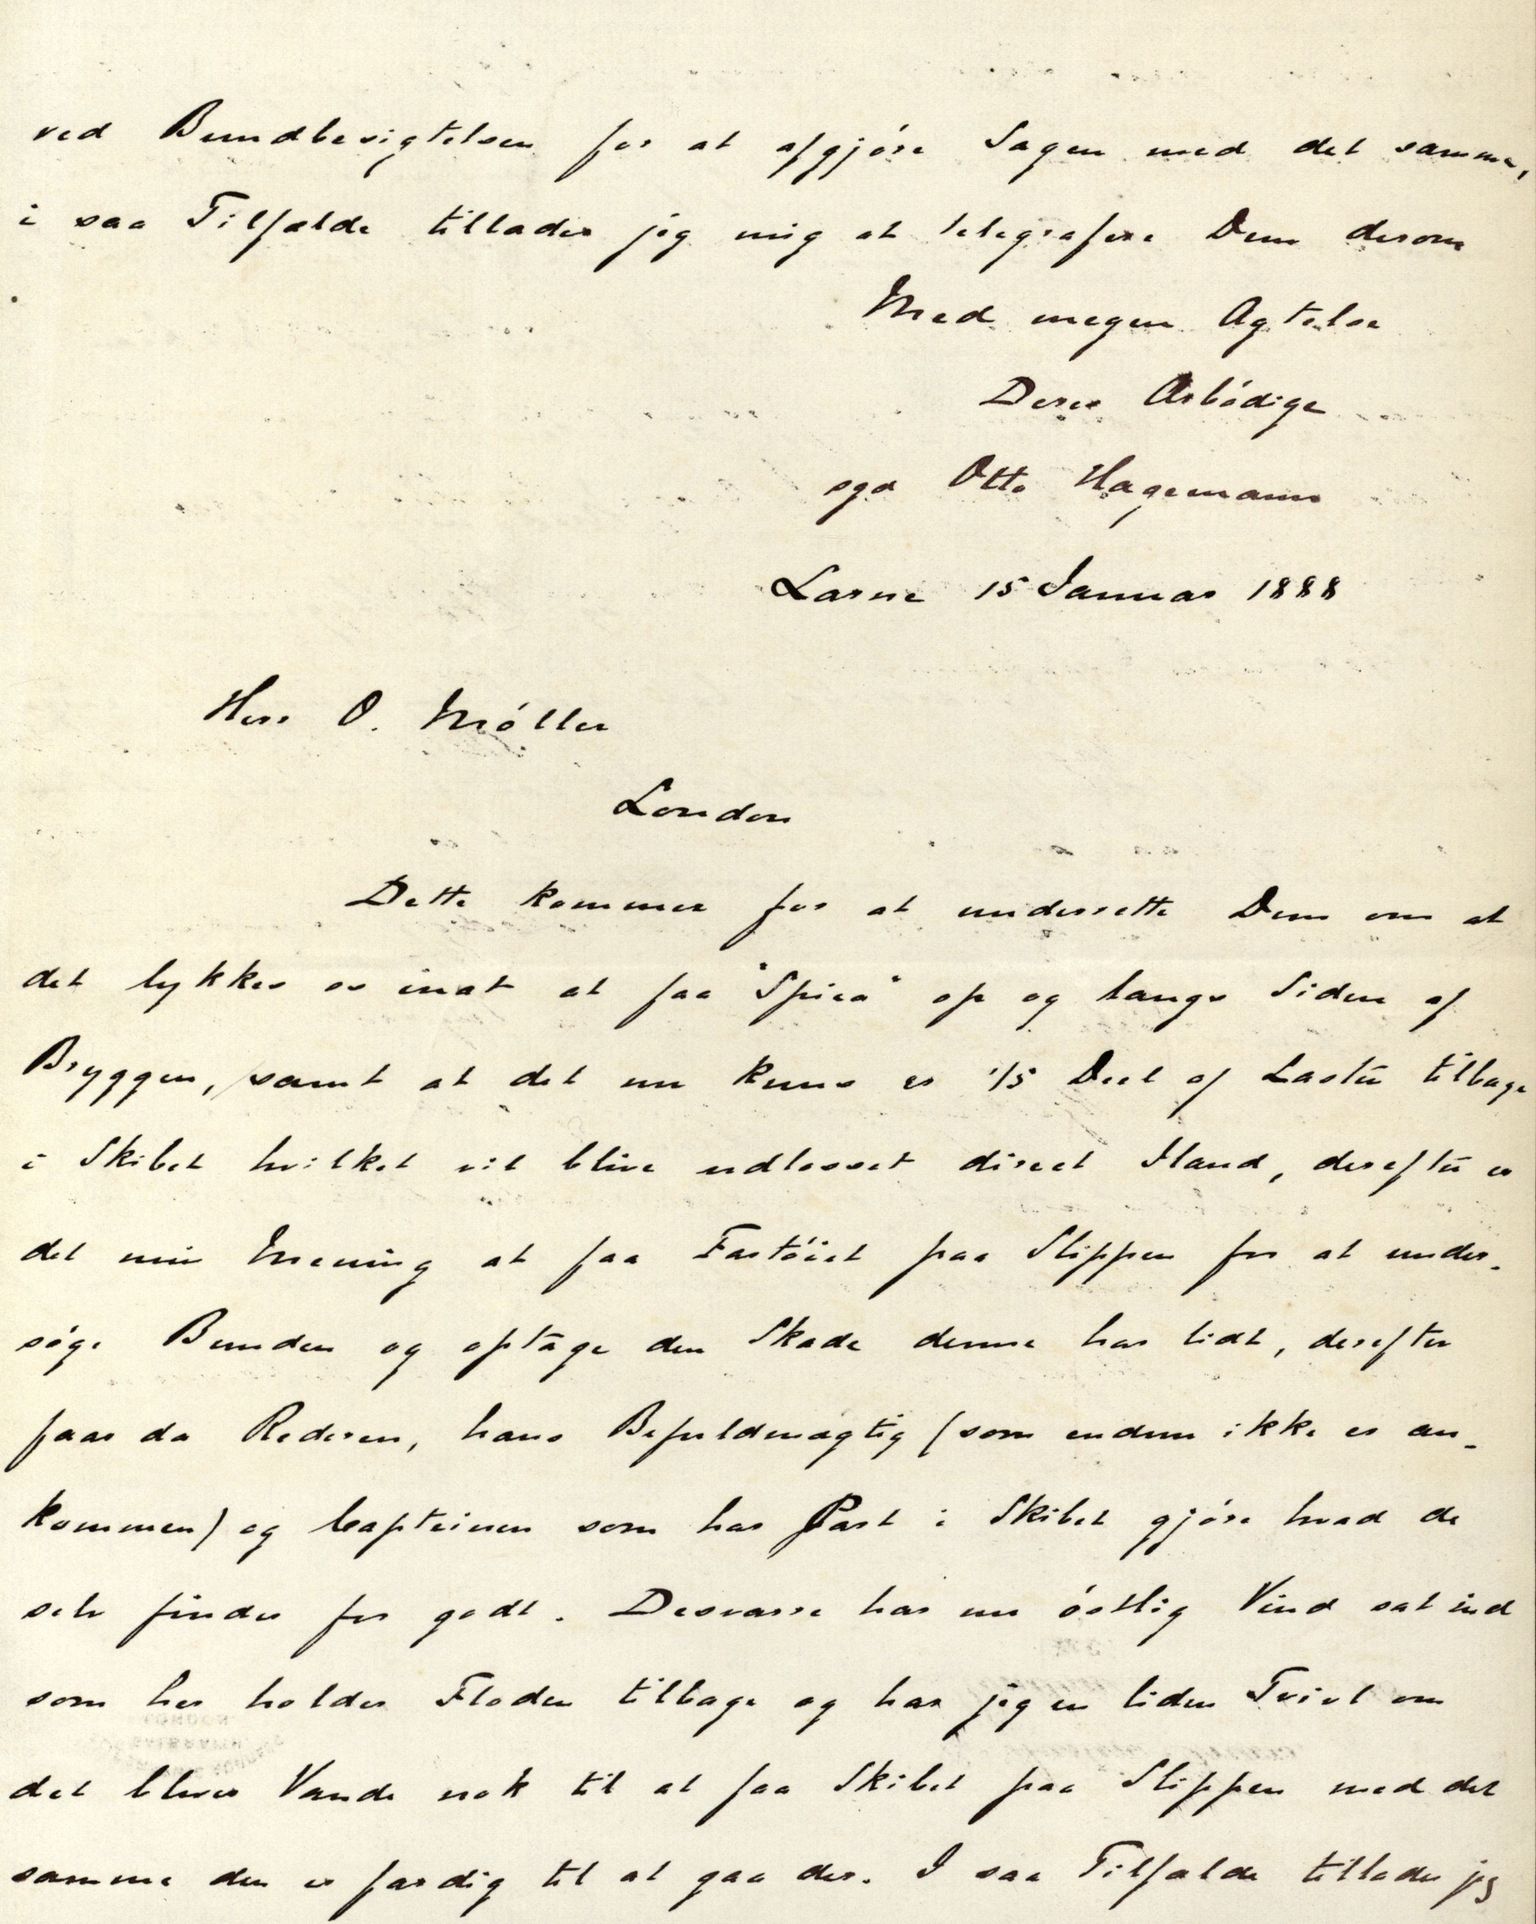 ved Bundbesigtelsen for at afgjøre Sagen med det samme,
i saa Tilfælde tillader jeg mig at telegrafere Dem derom
Med megen Agtelse
Deres Ærbødige
sgd Otto Hagemann
Larne 15 Januar 1888
Herr O. Møller
London
Dette kommer for at underrette Dem om at
det lykkes os inat at faa "Spica" op og langs Siden af
Bryggen, samt at det nu kuns er 1/5 Deel af Lasten tilbage
i Skibet hvilket vil blive udlosset direct Iland, derefter er
det min Mening at faa Fartøiet paa Slippen for at under-
søge Bunden og optage den Skade denne har lidt, derefter
faar da Rederen, hans Befuldmægtig (som endnu ikke er an-
kommen) og Capteinen som har Part i Skibet gjøre hvad de
selv finder for godt. Desværre har nu østlig Vind sat ind
som her holder Floden tilbage og har jeg en liden Tvivl om
det bliver Vande nok til at faa Skibet paa Slippen med det
samme den er færdig til at gaa der. I saa Tilfælde tillader jeg